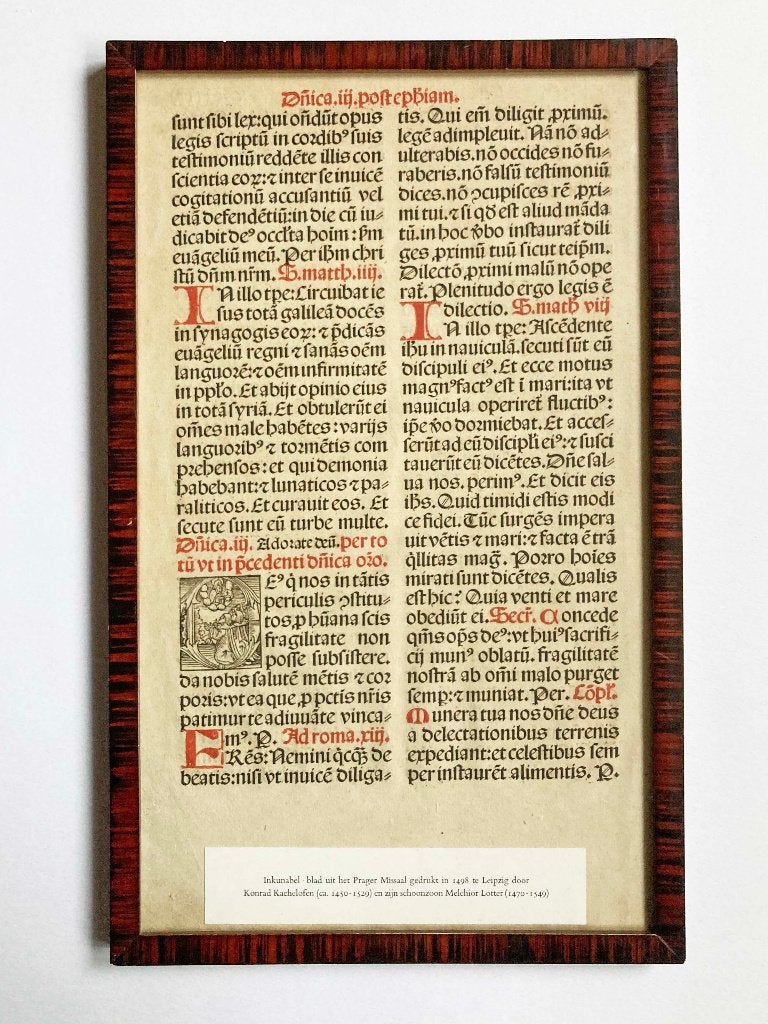 Dñica.iij.post ephiam.
sunt sibi lex: qui oñdũt opus
legis scriptũ in cordibꝰ suis
testimoniũ reddẽte illis con
scientia eoꝝ: ⁊ inter se inuicẽ
cogitationũ accusantiũ vel
etiã defendẽtiũ: in die cũ iu⸗
dicabit deꝰ occl̃ta hoim̃: ẜm
euãgeliũ meũ. Per ihm̃ chri
stũ dñm nr̃m. S. matth. iiij.
IN illo tp̃e: Circuibat ie
sus totã galileã docẽs
in synagogis eoꝝ: ⁊ p̃dicãs
euãgeliũ regni ⁊ sanãs oẽm
languorẽ: ⁊ oẽm infirmitatẽ
in pplo. Et abijt opinio eius
in totã syriã. Et obtulerũt ei
om̃es male habẽtes: varijs
languoribꝰ ⁊ tormẽtis com
prehensos: et qui demonia
habebant: ⁊ lunaticos ⁊ pa⸗
raliticos. Et curauit eos. Et
secute sunt eũ turbe multe.
Dñica. iij. Adorate deũ. per to
tũ vt in p̃cedenti dñica or̃o.
Eꝰ q̃ nos in tãtis
periculis ꝯstitu⸗
tos, ꝓ hũana scis
fragilitate non
posse subsistere.
da nobis salutẽ mẽtis ⁊ cor
poris: vt ea que, ꝓ pctis nr̃is
patimur te adiuuãte vinca⸗
mꝰ. P. Ad roma. xiij.
FRẽs: Nemini q̃cq̃ꝫ de
beatis: nisi vt inuicẽ diliga⸗
tis. Qui em̃ diligit ꝓximũ.
legẽ adimpleuit. Nã nõ ad⸗
ulterabis. nõ occides nõ fu⸗
raberis. nõ falsũ testimoniũ
dices. nõ ꝯcupisces rẽ ꝓxi⸗
mi tui. ⁊ si qd̃ est aliud mãda
tũ. in hoc v̾bo instaurat̃ dili
ges ꝓximũ tuũ sicut teip̃m.
Dilectõ ꝓximi malũ nõ ope
rat̃. Plenitudo ergo legis ẽ
dilectio. S. math viij
IN illo tp̃e: Ascẽdente
ihũ in nauiculã. secuti sũt eũ
discipuli eiꝰ. Et ecce motus
magnꝰ factꝰ est ĩ mari: ita vt
nauicula operiret̃ fluctibꝰ:
ip̃e v̾o dormiebat. Et acces⸗
serũt ad eũ discipl̃i eiꝰ: ⁊ susci
tauerũt eũ dicẽtes. Dñe sal⸗
ua nos. perimꝰ. Et dicit eis
ihs̃. Quid timidi estis modi
ce fidei. Tũc surgẽs impera
uit vẽtis ⁊ mari: ⁊ facta ẽ trã
q̃llitas mag̃. Porro hoies
mirati sunt dicẽtes. Qualis
est hic? Quia venti et mare
obediũt ei. Secr̃. Concede
q̃ms op̃s deꝰ: vt huiꝰ sacrifi⸗
cij munꝰ oblatũ. fragilitatẽ
nostrã ab om̃i malo purget
semp: ⁊ muniat. Per. Cõpl̃.
Munera tua nos dñe deus
a delectationibus terrenis
expediant: et celestibus sem
per instaurẽt alimentis. P.
Inkunabel · blad uit het Prager Missaal gedrukt in 1498 te Leipzig door
Konrad Kachelofen (ca. 1450-1529) en zijn schoonzoon Melchior Lotter (1470-1549)